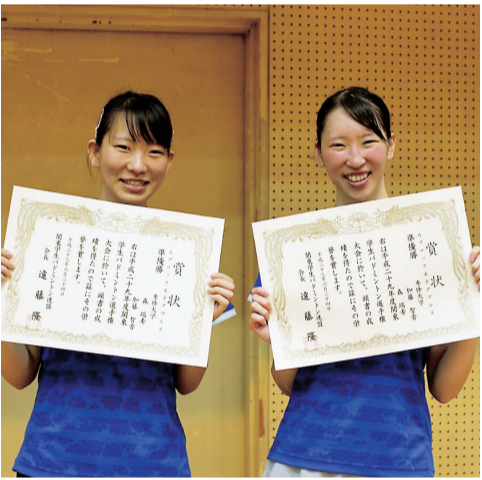 賞状
準優勝
専修大学
森 瑞希
加藤 智香
右は平成二十九年度関東
学生バドミントン選手権
大会に於いて、頭書の成
績を得たので茲にその栄
誉を賞します。
関東学生バドミントン連盟
会長 遠藤 隆
賞状
準優勝
専修大学
森 瑞希
加藤 智香
右は平成二十九年度関東
学生バドミントン選手権
大会に於いて、頭書の成
績を得たので茲にその栄
誉を賞します。
関東学生バドミントン連盟
会長 遠藤 隆